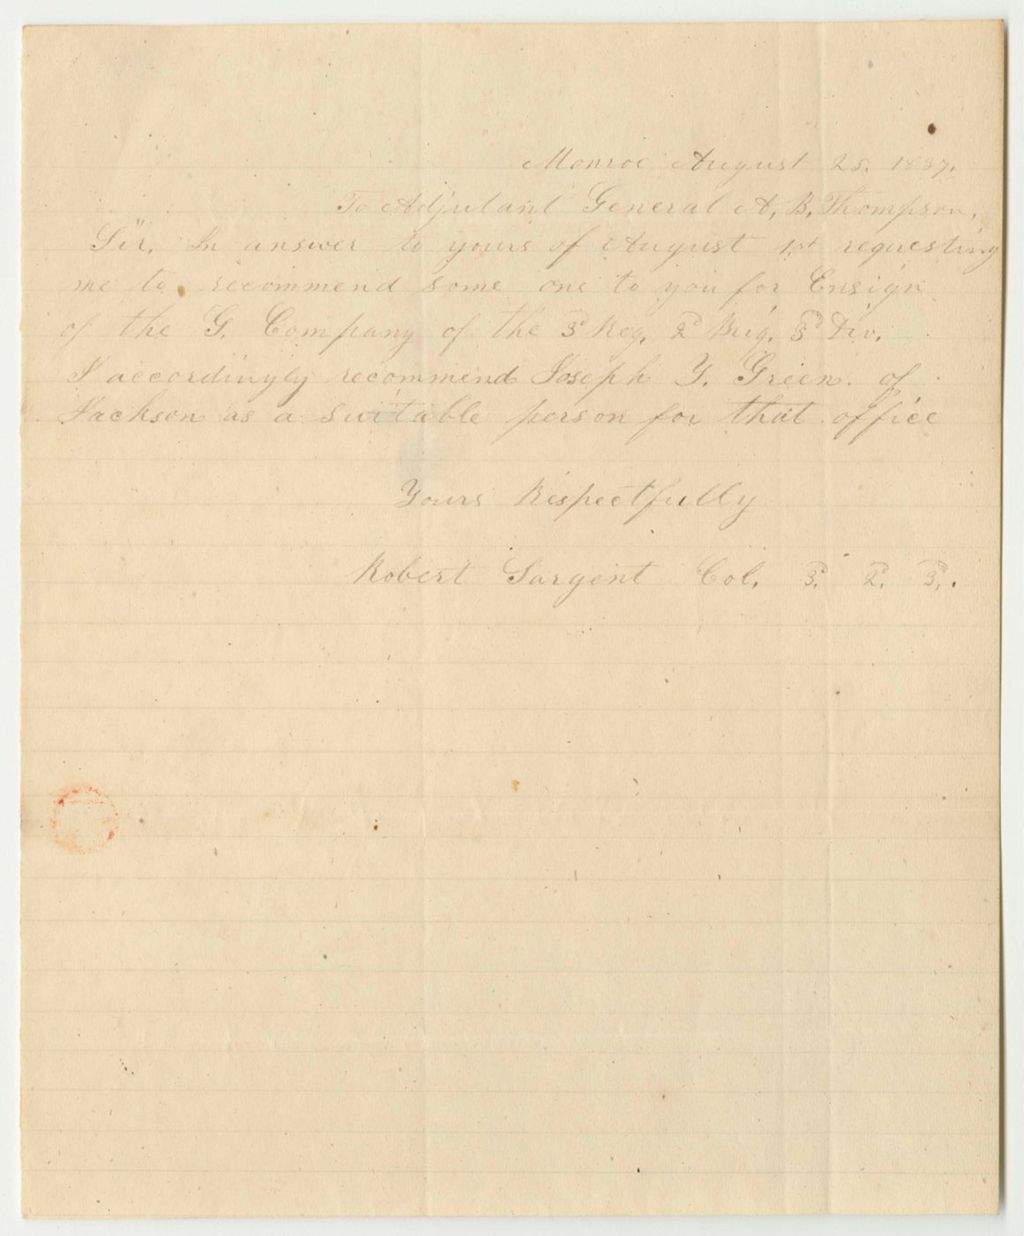 Monroe August 25. 1837.
To Adjutant General A. B. Thompson,
Sir, In answer to yours of August 1st requesting
me to recommend some one to you for Ensign
of the G. Company of the 3d Reg. 2d Brig. 3d Div.
I accordingly recommend Joseph Y. Green of
Jackson as a suitable person for that office
Yours Respectfully
Robert Sargent Col. 3d. 2d. 3d.